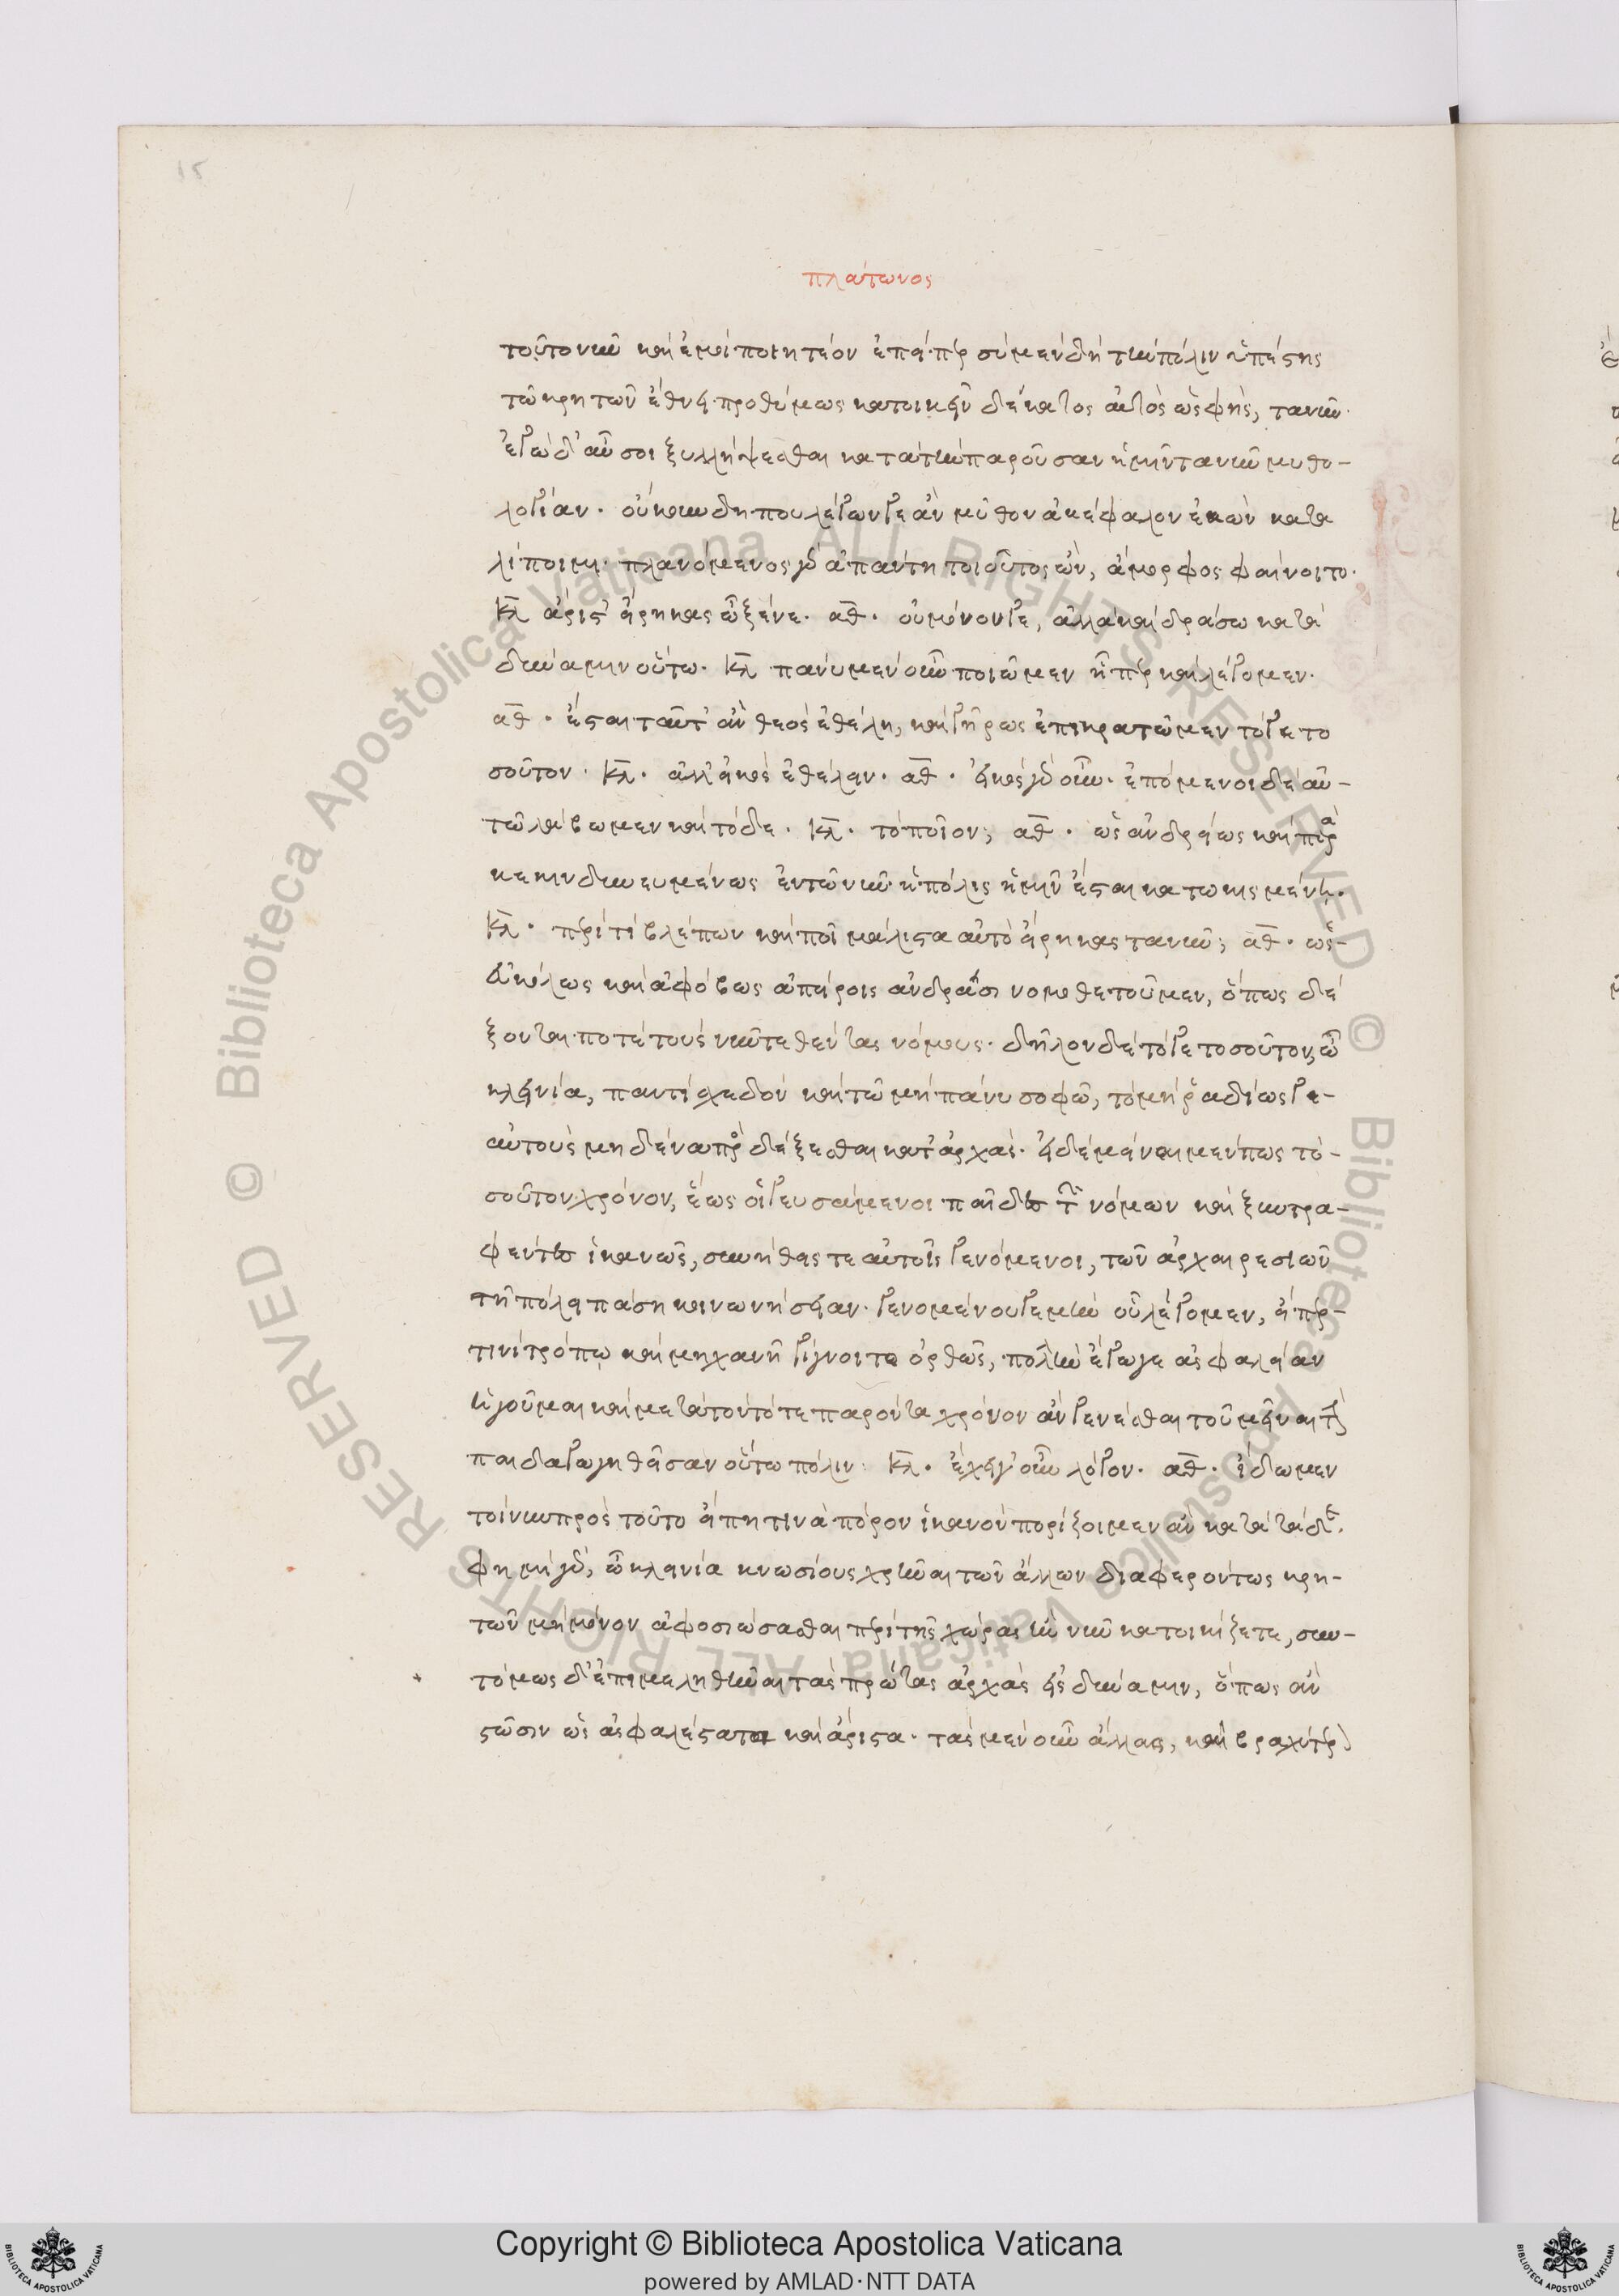 15
πλάτωνος
τοῦτο νῦν καὶ ἐμοὶ ποιητέον ἐπείπερ σὺ μὲν δὴ τὴν πόλιν ὑπέστης
τῶ κρητῶν ἔθνει προθύμως κατοικιεῖν δέκατος αὐτὸς ὡς φῂς, τανῦν·
ἐγὼ δ' αὖ σοι ξυλλήψεσθαι κατὰ τὴν παροῦσαν ἡμῖν τανῦν μυθο-
λογίαν. οὔκουν δή που λέγων γε ἂν μῦθον ἀκέφαλον ἑκὼν κατα
λίποιμι· πλανόμενος γὰρ ἁπάντη τοιοῦτος ὢν, ἄμορφος φαίνοιτο.
κλ ἄριστ' εἴρηκας ὦ ξένε. αθ. οὐ μόνον γε, ἀλλὰ καὶ δράσω κατὰ
δύναμιν οὕτω. κλ πάνυ μὲν οὖν ποιῶμεν ᾗπερ καὶ λέγομεν.
αθ. ἔσται ταῦτ' ἂν θεὸς ἐθέλη, καὶ γήρως ἐπικρατῶμεν τό γε το
σοῦτον. κλ. ἀλλ' εἰκὸς ἐθέλειν. αθ. εἰκὸς γὰρ οὖν. ἑπόμενοι δὲ αὐ-
τῶ λάβωμεν καὶ τόδε. κλ. τὸ ποῖον; αθ. ὡς ἀνδρείως καὶ παρα
κεκινδυνευμένως ἐν τῶ νῦν ἡ πόλις ἡμῖν ἔσται κατωκισμένη.
κλ. περὶ τί βλέπων καὶ ποῖ μάλιστα αὐτὸ εἴρηκας τανῦν; αθ. ὡς
εὐκόλως καὶ ἀφόβως ἀπείροις ἀνδράσι νομοθετοῦμεν, ὅπως δέ
ξονταί ποτε τοὺς νῦν τεθέντας νόμους. δῆλον δὲ τό γε τοσοῦτον, ὦ
κλεινία, παντὶ σχεδὸν καὶ τῶ μὴ πάνυ σοφῶ, τὸ μὴ ῥαδίως γε
αὐτοὺς μηδένα προσδέξεσθαι κατ' ἀρχὰς. εἰ δὲ μείναιμέν πως το-
σοῦτον χρόνον, ἕως οἱ γευσάμενοι παῖδες τῶν νόμων καὶ ξυντρα-
φέντες ἱκανῶς, συνήθεις τε αὐτοῖς γενόμενοι, τῶν ἀρχαιρεσιῶν
τῇ πόλει πάση κοινωνήσειαν. γενομένου γε μὴν οὗ λέγομεν, εἴπερ
τινὶ τρόπῳ καὶ μηχανῇ γίγνοιτο ὀρθῶς, πολλὴν ἔγωγε ἀσφάλειαν
ἡγοῦμαι καὶ μετὰ τὸν τότε παρόντα χρόνον ἂν γενέσθαι τοῦ μεῖναι τὴν
παιδαγωγηθεῖσαν οὕτω πόλιν. κλ. ἔχει γ' οὖν λόγον. αθ. ἴδωμεν
τοίνυν πρὸς τοῦτο εἴ πή τινα πόρον ἱκανὸν πορίζοιμεν ἂν κατὰ τάδε.
φημὶ γὰρ, ὦ κλεινία κνωσίους χρῆναι τῶν ἄλλων διαφερόντως κρη-
τῶν μὴ μόνον ἀφοσιώσασθαι περὶ τῆς χώρας ἣν νῦν κατοικίζετε, συν-
τόμως δ' ἐπιμεληθῆναι τὰς πρώτας ἀρχὰς εἰς δύναμιν, ὅπως ἂν
στῶσιν ὡς ἀσφαλέστατα καὶ ἄριστα. τὰς μὲν οὖν ἄλλας, καὶ βραχύτερον
Copyright © Biblioteca Apostolica Vaticana
powered by AMLAD·NTT DATA